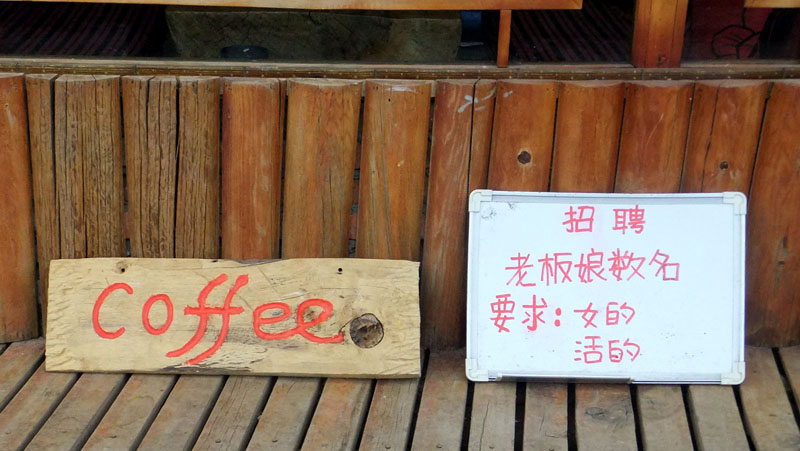 Coffee
招聘
老板娘数名
要求:女的
活的